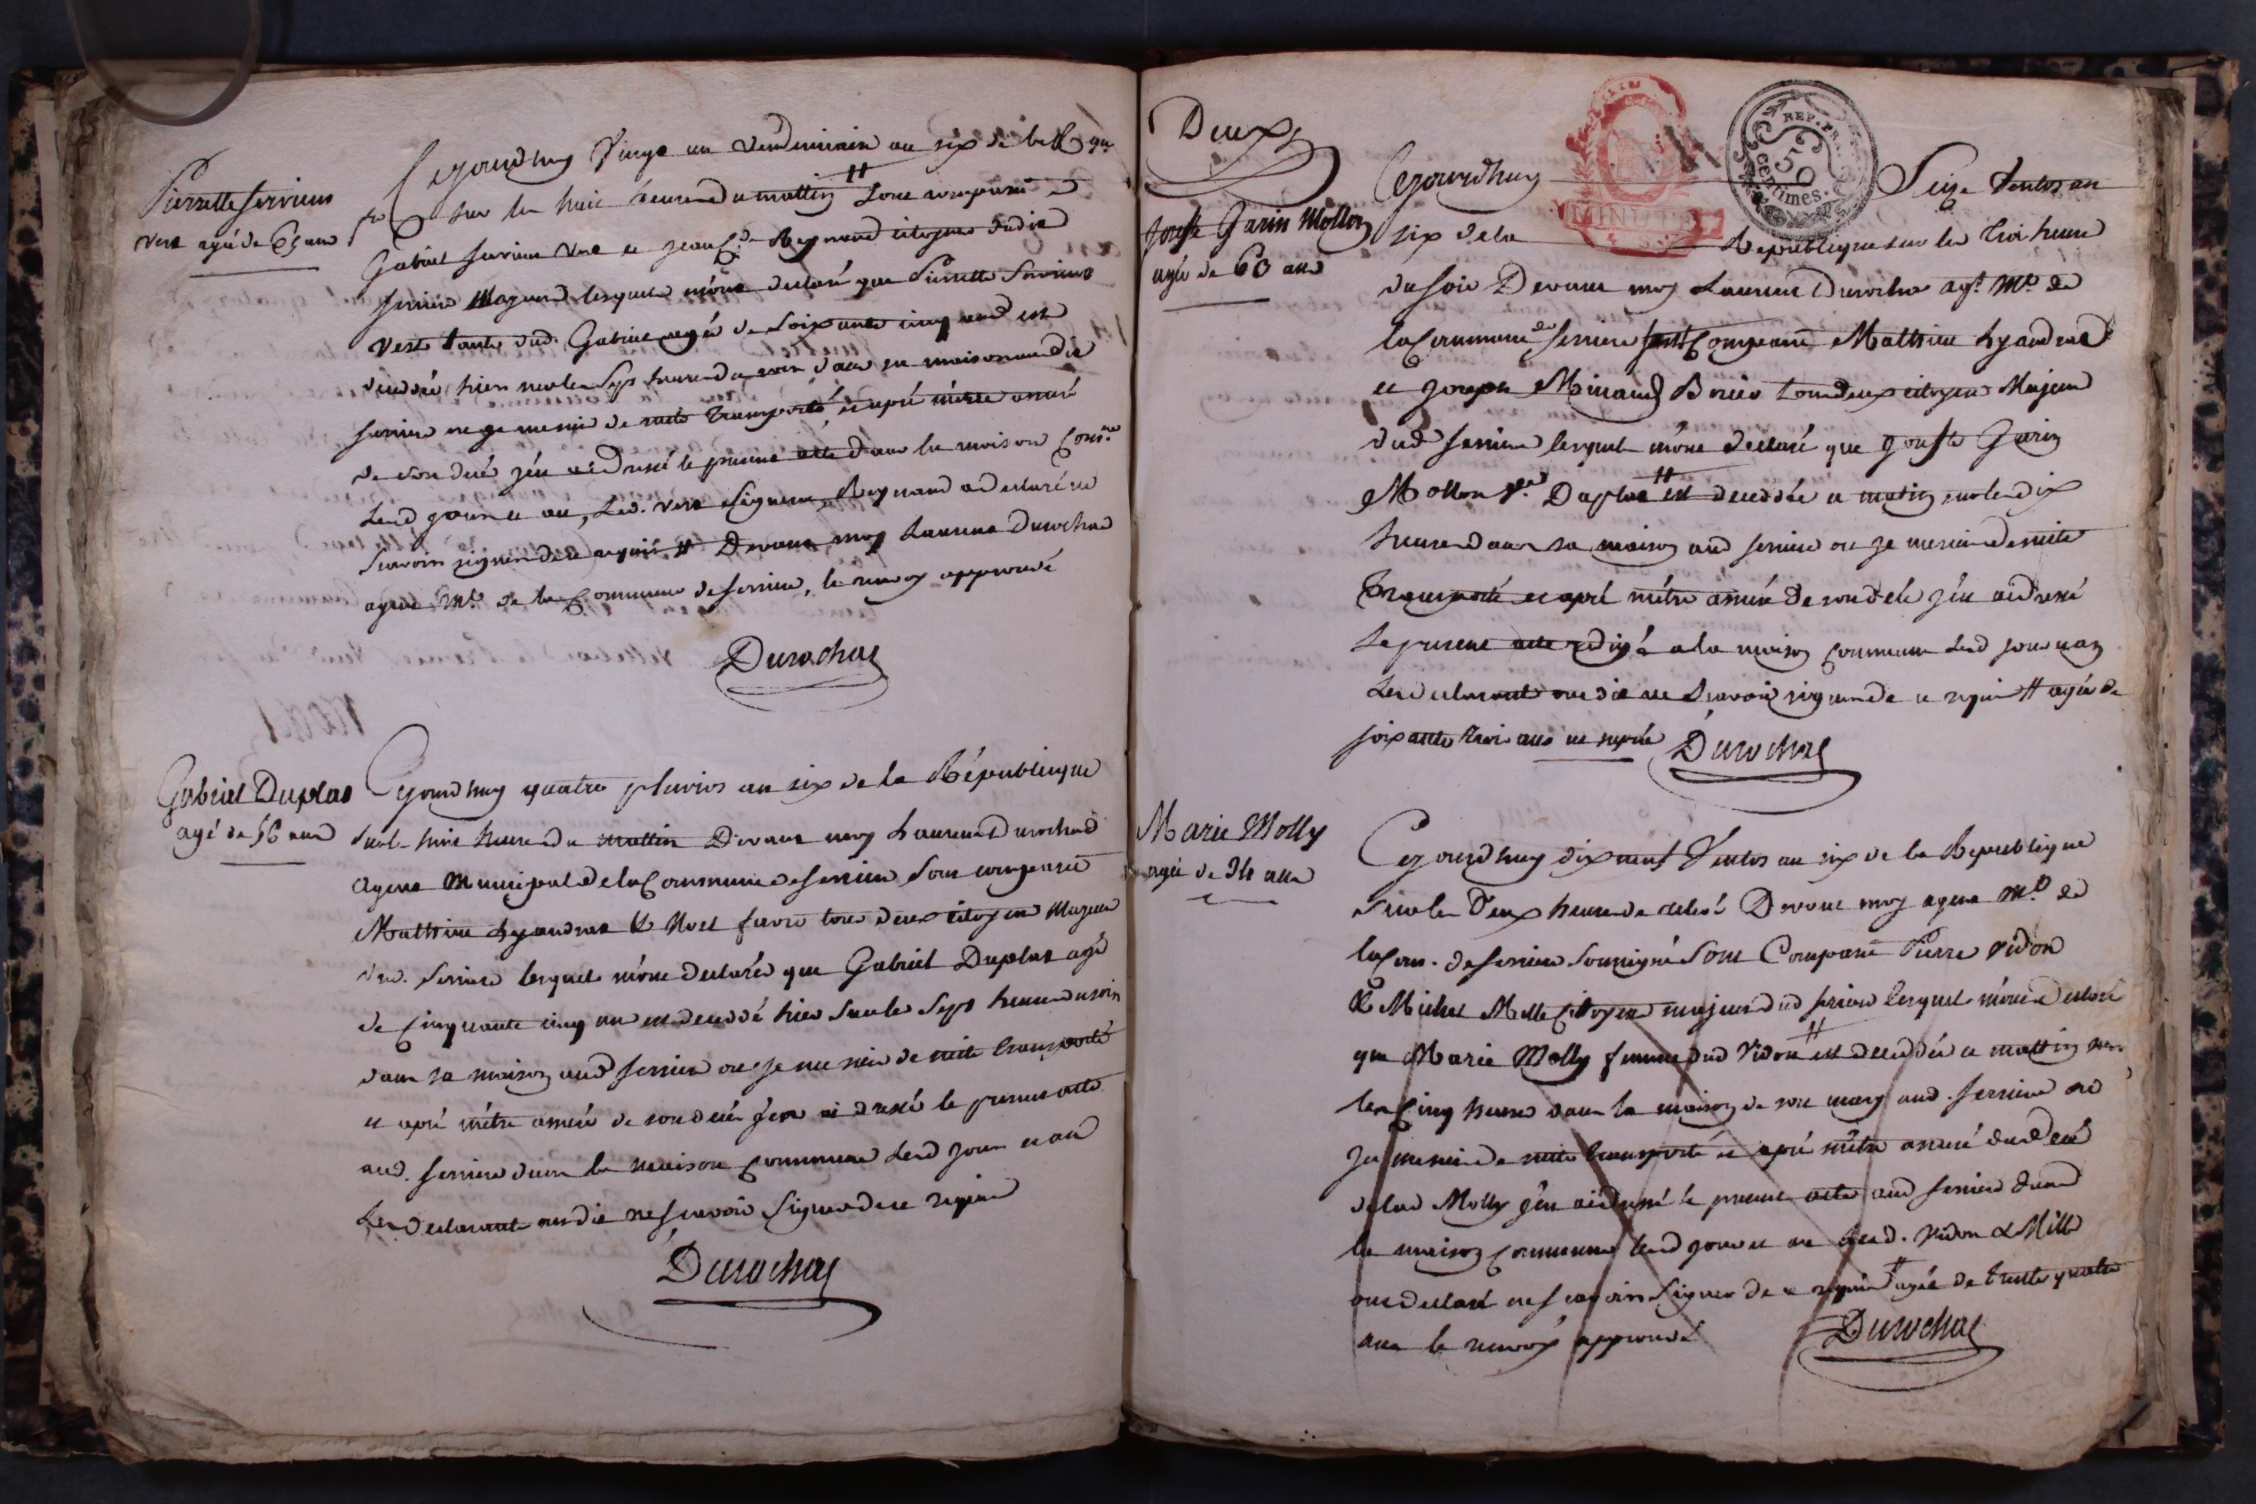 Pierrette Servieux
vere agé de 65 ans
Cejourdhuy Vingt un vendemiaire an six de la Rque
sur les huit heures du mattin sont comparu
Gabriel servieux vere et jean Reynaud citoyens dudit
serriere Majeurs lesquels mont declaré que Pierrette Servieux
vere tante dud. Gabriel agée de soixante cinq ans est
decedée hier sur les sept heures du soir dans sa maison audit
serriere ou je me suis de suite transporté et apré mêttre assuré
de son decé jen ai dressé le present acte dans la maison Comne
lesd jour et an, led. vere signera, Reynaud a declaré ne
scavoir signer de ce requis # Devant moy Laurent Durochas
agent Mal de la Commune de serriere, le renvoy approuvé
Durochas
Gabriel Duplas
agé de 56 ans
Cejourdhuy quatre pluvios an six de la République
sur les huit heures du mattin Devant moy Laurent Durochas
agent Municipal de la Commune de serriere sont comparu
Matthieu Lyandras & Noel favre tous deux citoyens Majeurs
dud. serriere lesquels mont declaré que Gabriel Duplas agé
de Cinquante cinq an est decedé hier sur les sept heures du soir
dans sa maison aud serriere ou je me suis de suite transporté
et apré mêtre assuré de son decé jen ai dressé le present acte
aud. serriere dans la maison Commune lesd jour et an
Les declarants ont dit ne scavoir signer de ce requis
Durochas
Deux
REP. FR.
50
centimes.
MINUTES
Cejourdhuy Seize Ventos an
Garin Mollon
agée de 60 ans
six de la Republique sur les troi heures
du soir Devant moy Laurent Durochas agt Mal de
la Commune de serriere sont Comparu Matthieu Lyandras
et joseph Minaud Borier tous deux citoyens Majeurs
dud serriere lesquels mont declaré que Garin
Mollon Duplas # est decedée ce matin sur les dix
heures dans sa maison aud serriere ou je me suis de suite
transporté et apré mêtre assuré de son decé jen ai dressé
le present acte redigé a la maison Commune lesd jour et an
Les declarants ont dit ne scavoir signer de ce requis # agée de
soixante troi ans
Durochas
Marie Molly
agée de 34 ans
Cejourdhuy dix neuf Ventos an six de la Republique
sur les Deux heures de relevé Devant moy agent Mal de
la Com. de serriere soussigné sont Comparu Pierre Vidon
& Michel Mille Citoyens majeurs dud serriere lesquels mont declaré
que Marie Molly femme dud Vidon # est decedée ce mattin sur
les Cinq heures dans la maison de son mary aud. serriere ou
je me suis de suite transporté et apré mêtre assuré dud decé
de lad Molly jen ai dressé le present acte aud serriere dans
la maison Commune lesd jour et an lesd. Vidon & Mille
ont declaré ne scavoir signer de ce requis # agée de trente quatre
ans le renvoy approuvé
Durochas